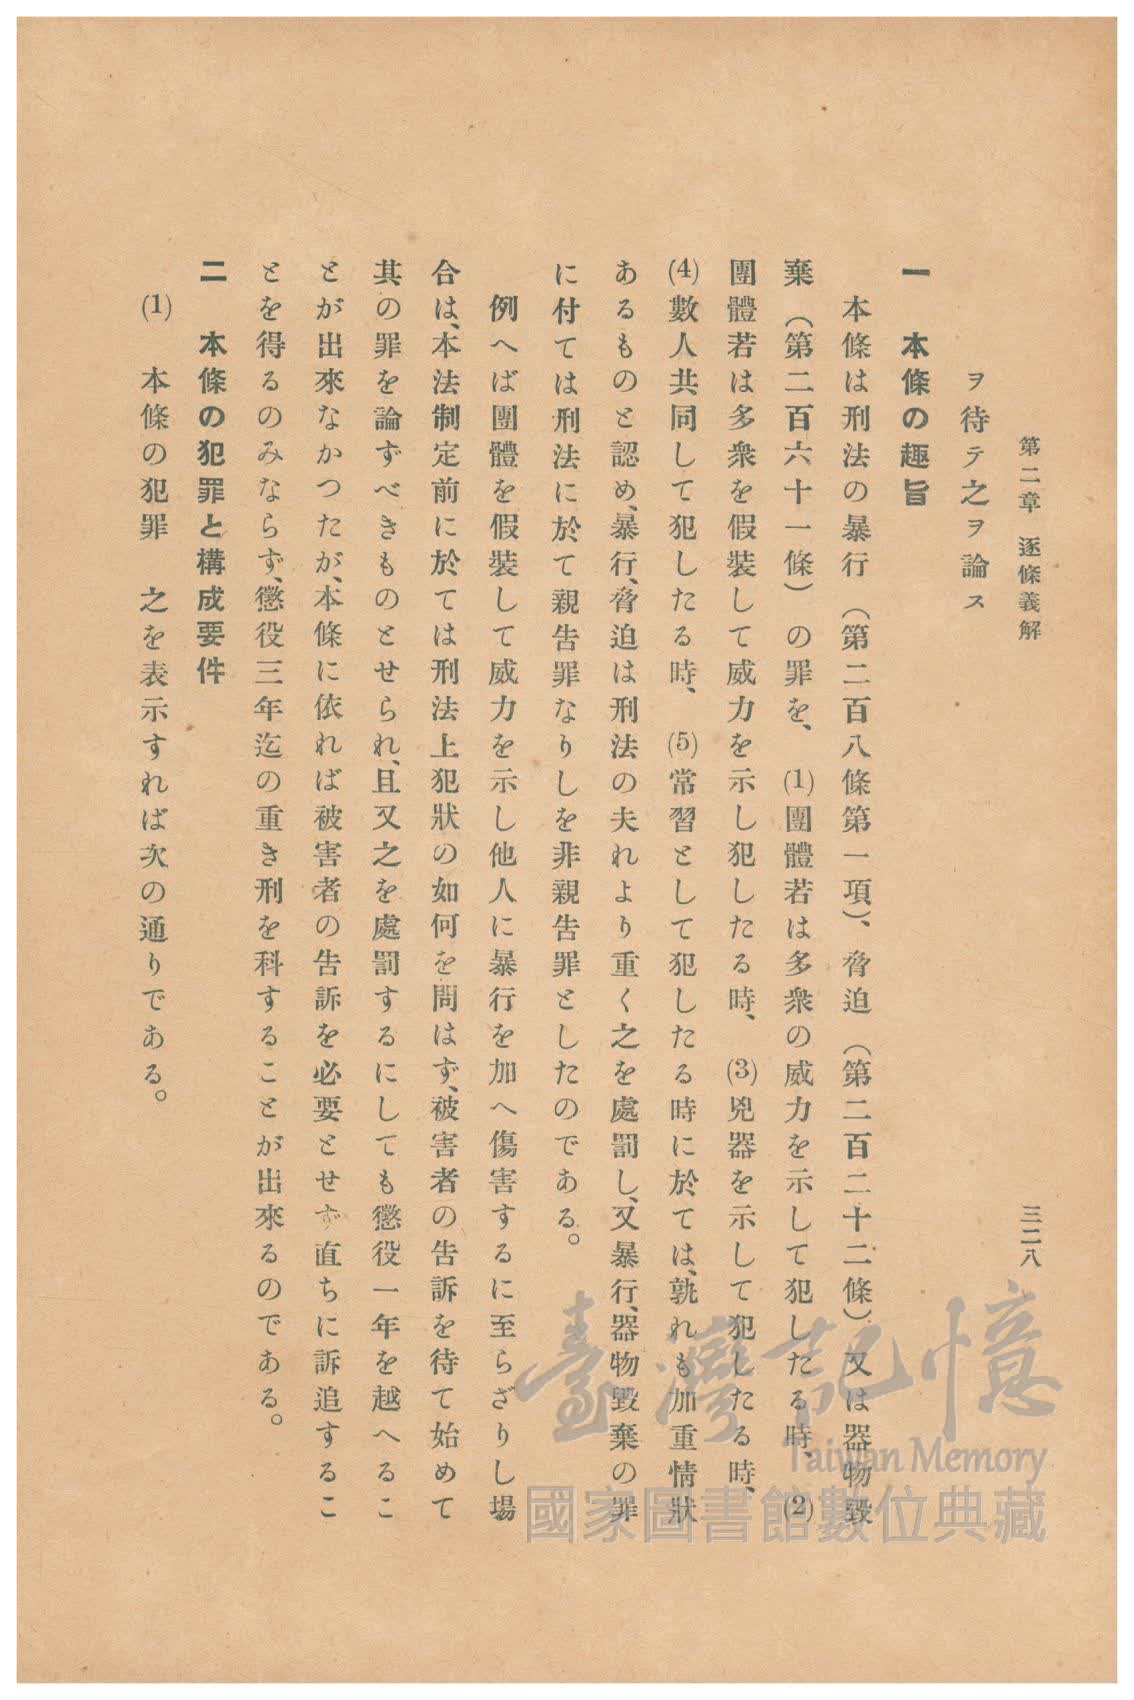 第二章 逐條義解
三二八
ヲ待テ之ヲ論ス
一 本條の趣旨
本條は刑法の暴行（第二百八條第一項）、脅迫（第二百二十二條）又は器物毀
棄（第二百六十一條）の罪を、(1)團體若は多衆の威力を示して犯したる時、(2)
團體若は多衆を假裝して威力を示し犯したる時、(3)兇器を示して犯したる時、
(4)數人共同して犯したる時、(5)常習として犯したる時に於ては、孰れも加重情狀
あるものと認め、暴行、脅迫は刑法の夫れより重く之を處罰し、又暴行、器物毀棄の罪
に付ては刑法に於て親告罪なりしを非親告罪としたのである。
例へば團體を假裝して威力を示し他人に暴行を加へ傷害するに至らざりし場
合は、本法制定前に於ては刑法上犯狀の如何を問はず、被害者の告訴を待て始めて
其の罪を論ずべきものとせられ、且又之を處罰するにしても懲役一年を越へるこ
とが出來なかつたが、本條に依れば被害者の告訴を必要とせず直ちに訴追するこ
とを得るのみならず、懲役三年迄の重き刑を科することが出來るのである。
二 本條の犯罪と構成要件
(1) 本條の犯罪 之を表示すれば次の通りである。
臺灣記憶
Taiwan Memory
國家圖書館數位典藏